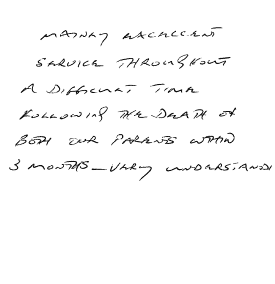 MAINLY EXCELLENT
SERVICE THROUGHOUT
A DIFFICULT TIME
FOLLOWING THE DEATH OF
BOTH OUR PARENTS WITHIN
3 MONTHS - VERY UNDERSTANDI